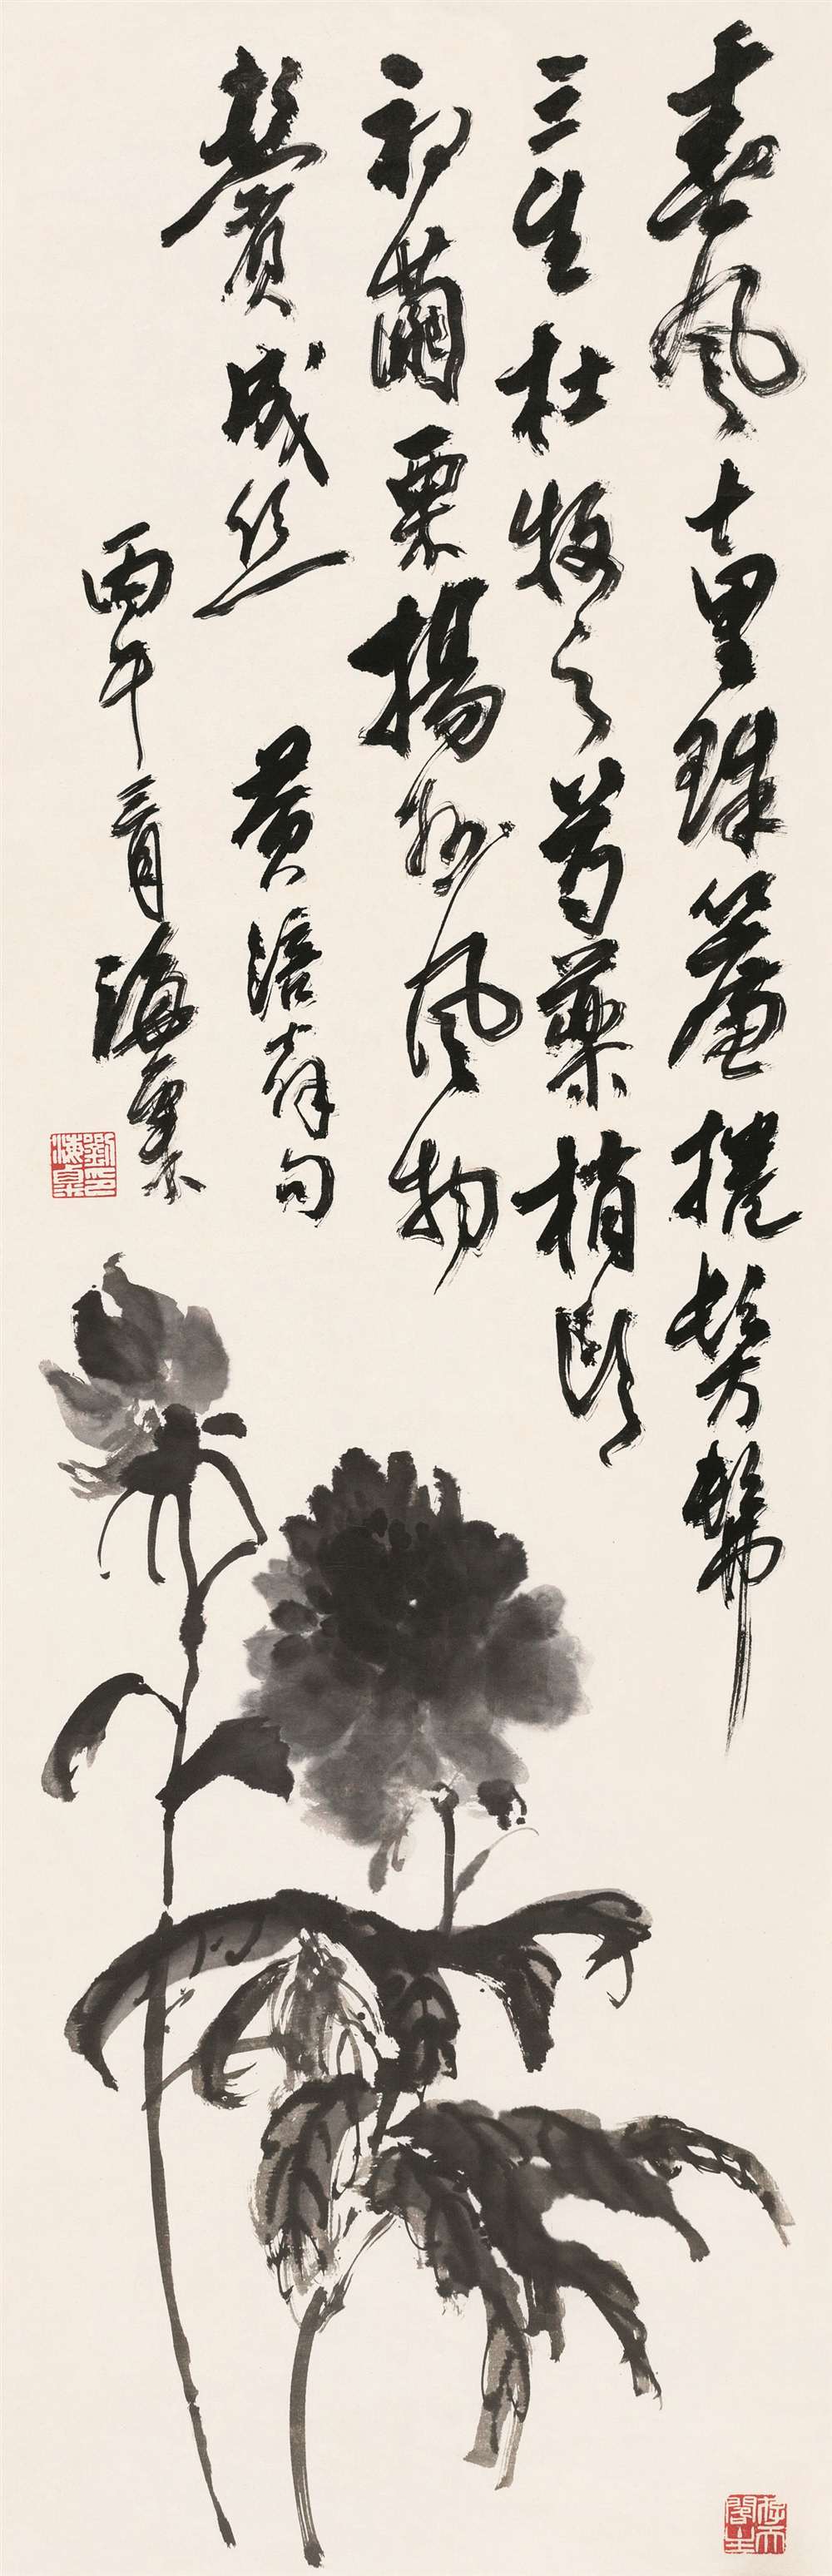 春風十里珠簾捲髣髴
三生杜牧之芍藥梢頭
初繭栗揚州風物
鬢成絲 黃涪翁句
丙午三月海粟
劉印海粟
存天閣主